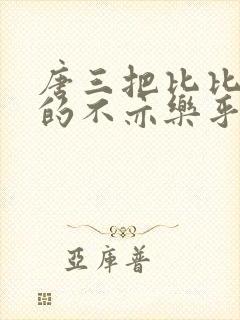 唐三把比比
的不亦樂乎
亞庫普